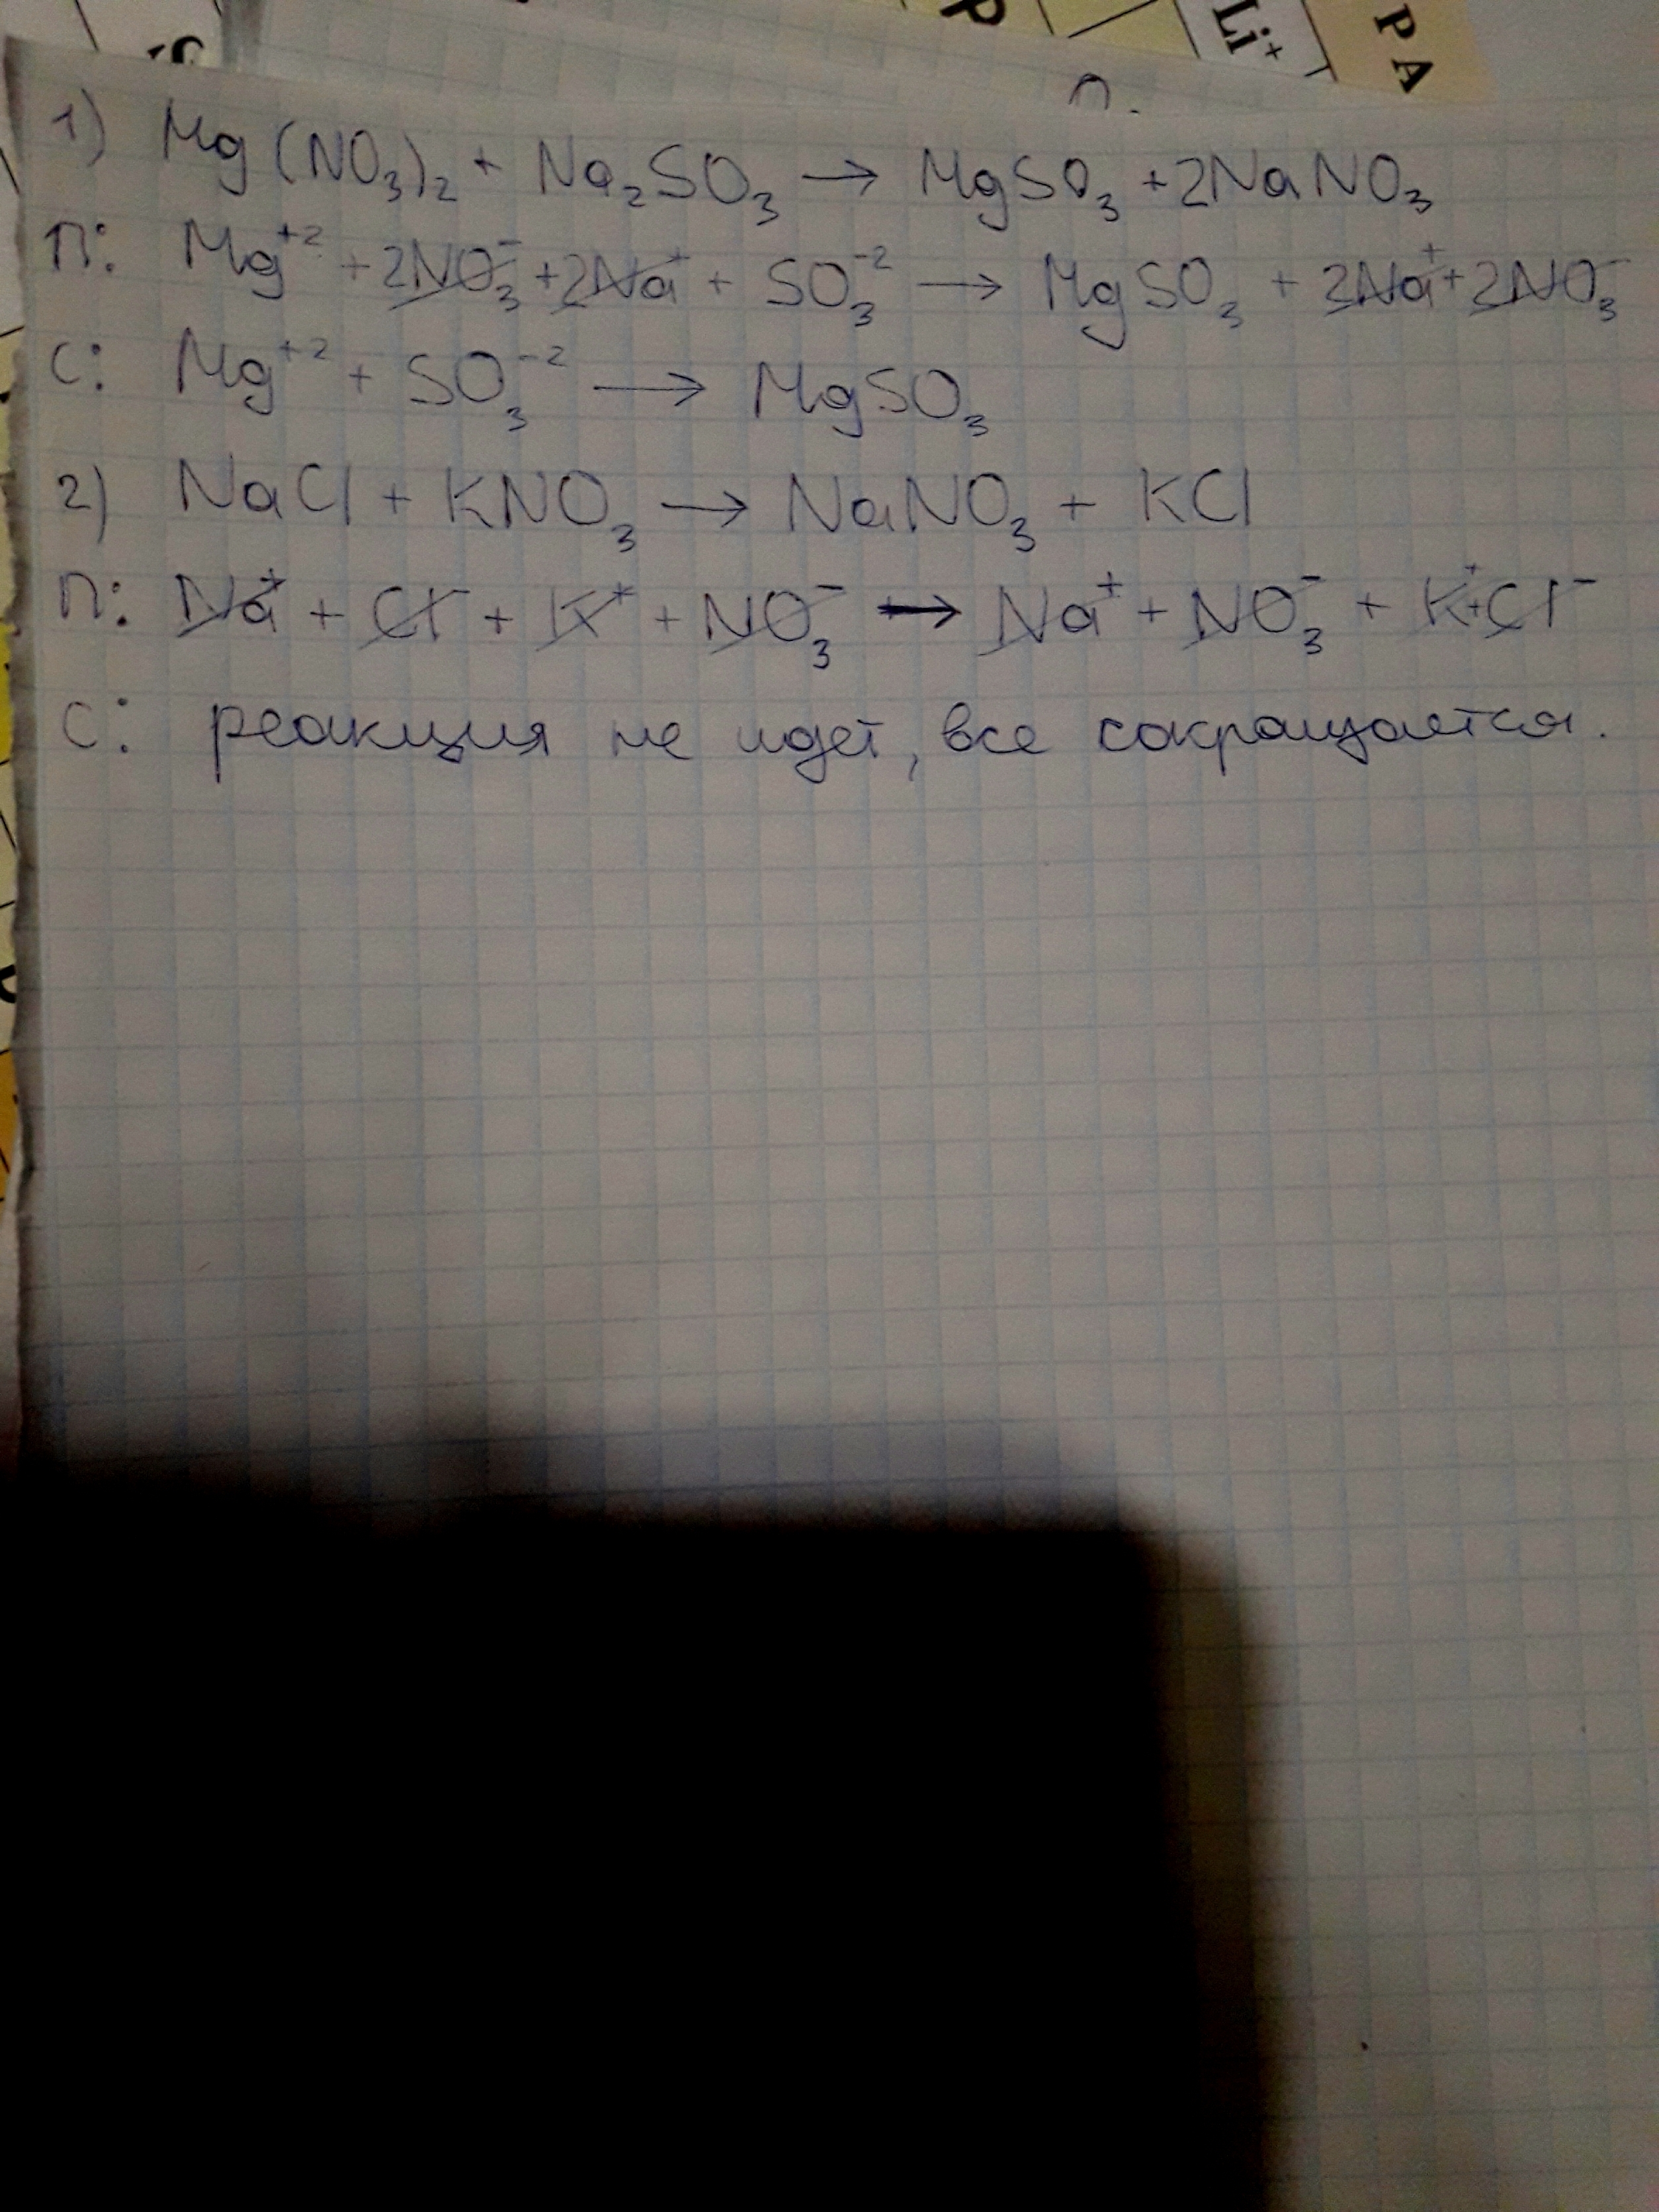 Р
Li⁺
Р А
п.
1) Mg(NO₃)₂ + Na₂SO₃ → MgSO₃ + 2NaNO₃
П: Mg⁺² + 2NO₃⁻ + 2Na⁺ + SO₃⁻² → MgSO₃ + 2Na⁺ + 2NO₃⁻
С: Mg⁺² + SO₃⁻² → MgSO₃
2) NaCl + KNO₃ → NaNO₃ + KCl
П: Na⁺ + Cl⁻ + K⁺ + NO₃⁻ → Na⁺ + NO₃⁻ + K⁺ + Cl⁻
С: реакция не идет, все сокращается.